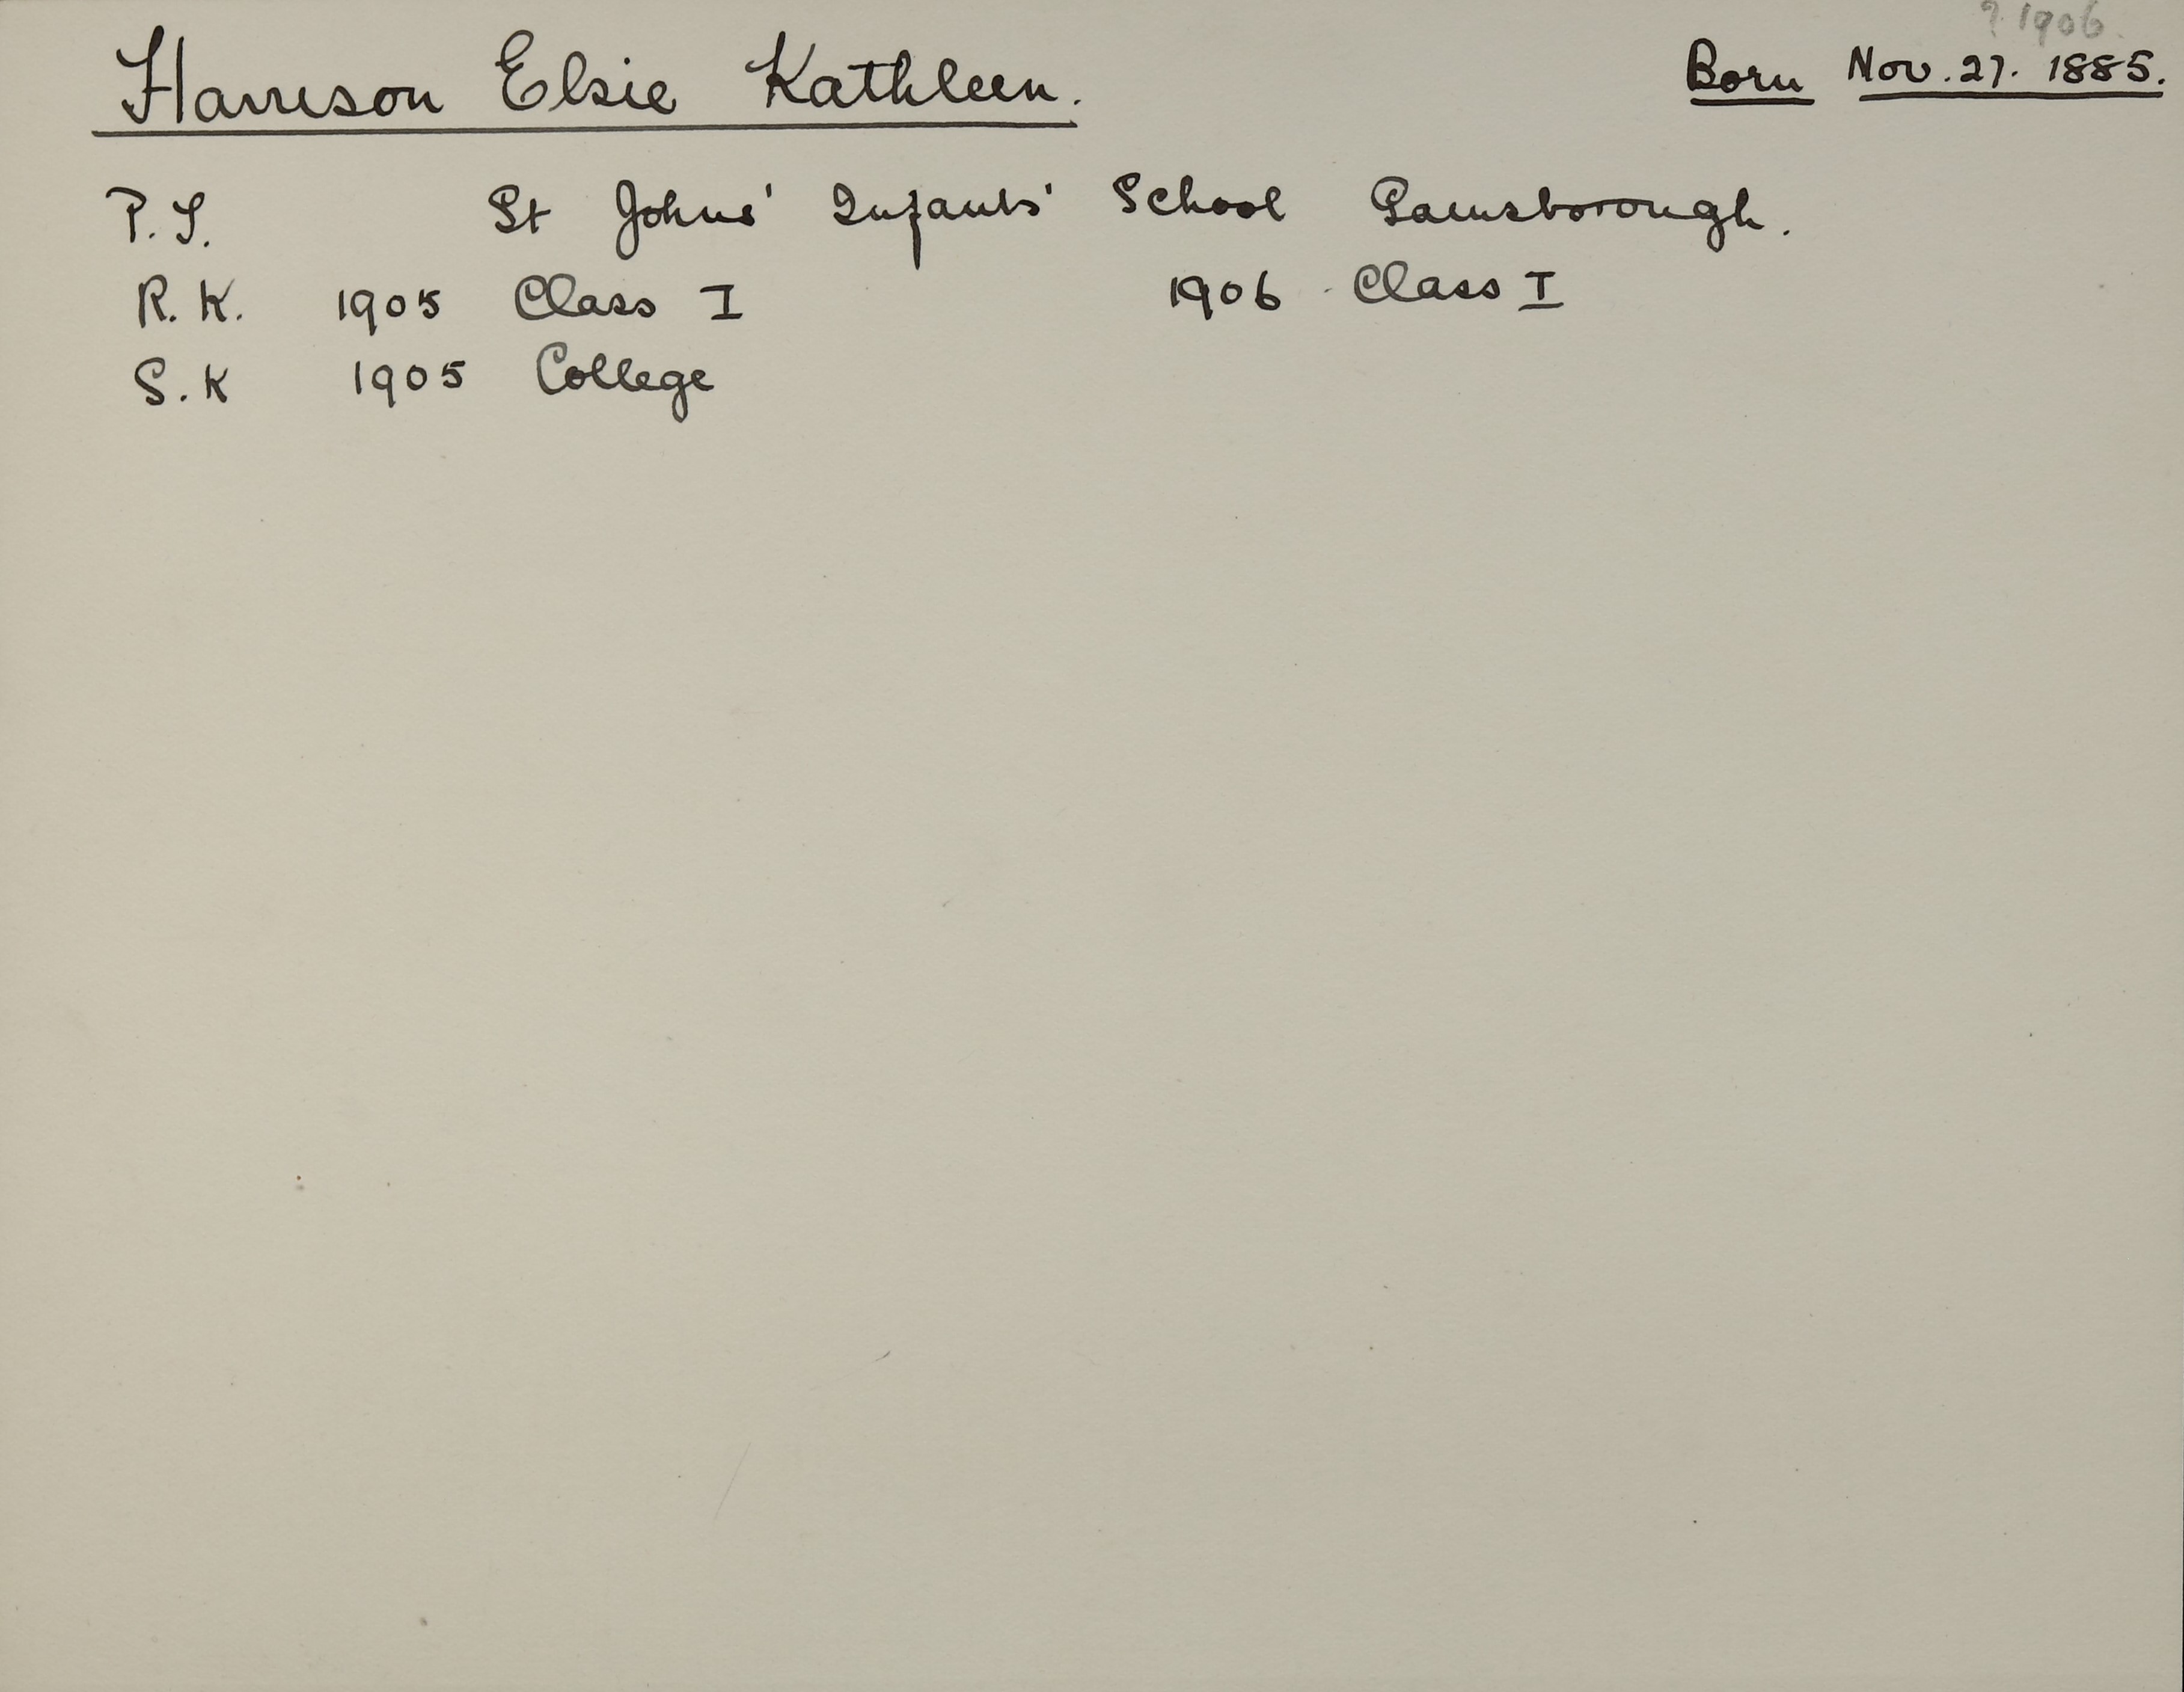 ? 1906.
Harrison Elsie Kathleen. Born Nov. 27. 1885.
P.S. St Johns' Infants' School Gainsborough.
R.K. 1905 Class I 1906 Class I
S.K 1905 College